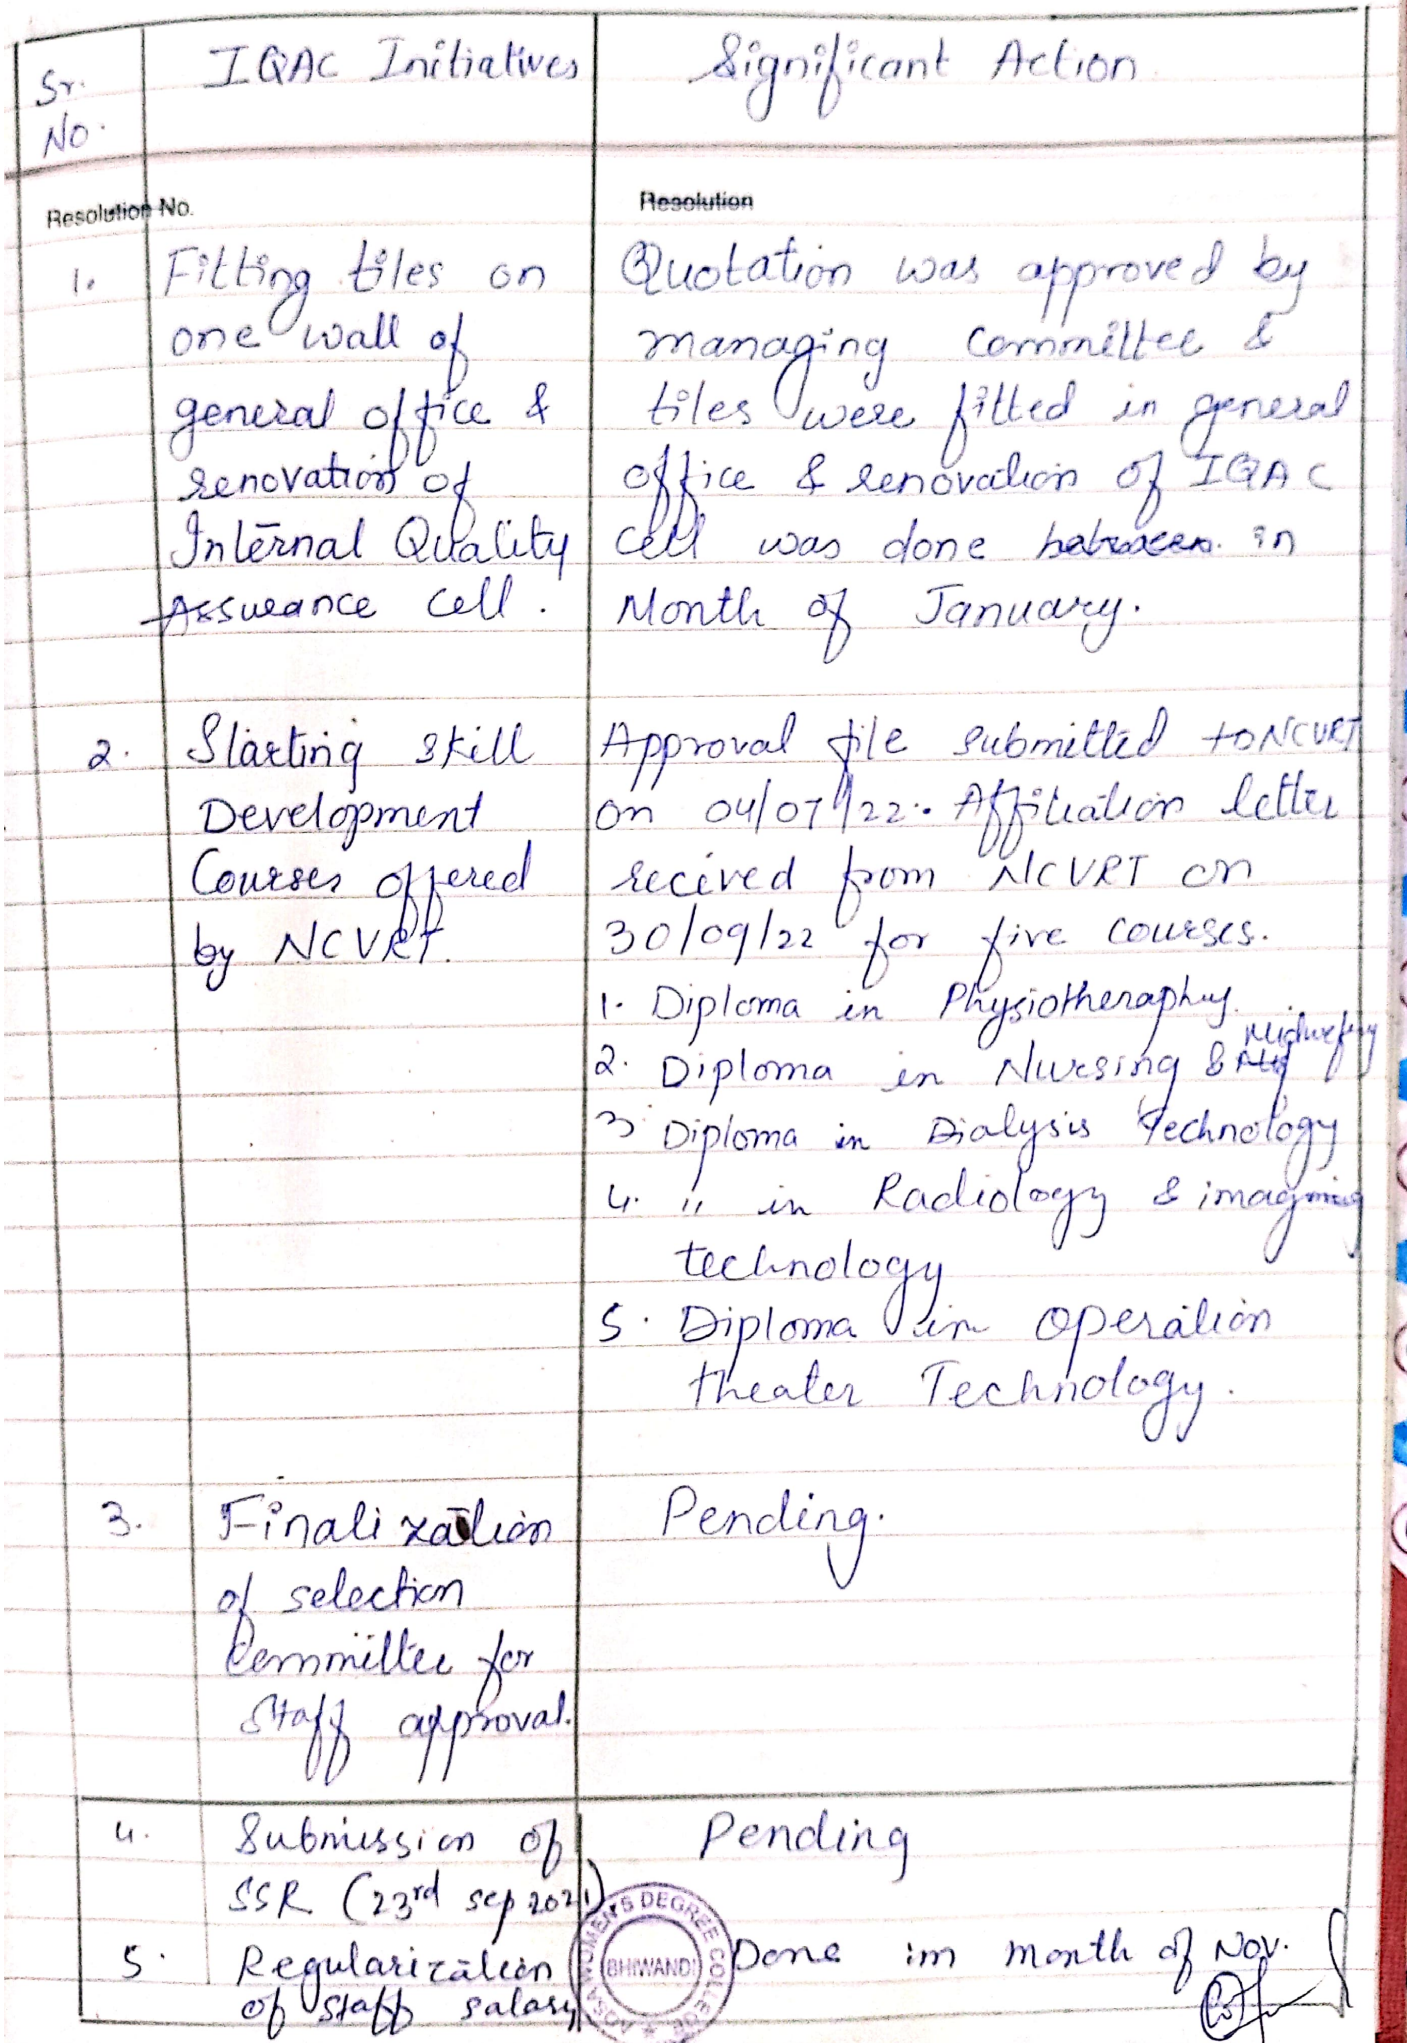 Sr. No.
IQAC Initiatives
Significant Action
Resolution No.
Resolution
1.
Fitting tiles on
one wall of
general office &
renovation of
Internal Quality
Assurance Cell.
Quotation was approved by
managing Committee &
tiles were fitted in general
office & renovation of IQAC
Cell was done between in
Month of January.
2.
Starting skill
Development
Courses offered
by NCVRT.
Approval file submitted to NCVRT
on 04/07/22. Affiliation letter
recived from NCVRT on
30/09/22 for five courses.
1. Diploma in Physiotheraphy.
2. Diploma in Nursing & Midwefery
3 Diploma in Dialysis Technology
4. " in Radiology & imagining
technology
5. Diploma in Operation
theater Technology.
3.
Finalization
of selection
Committee for
Staff approval.
Pending.
4.
Submission of
SSR (23rd sep 2021)
Pending
5.
Regularization
of staff salary
Done in month of Nov.
WOMEN'S DEGREE COLLEGE
BHIWANDI